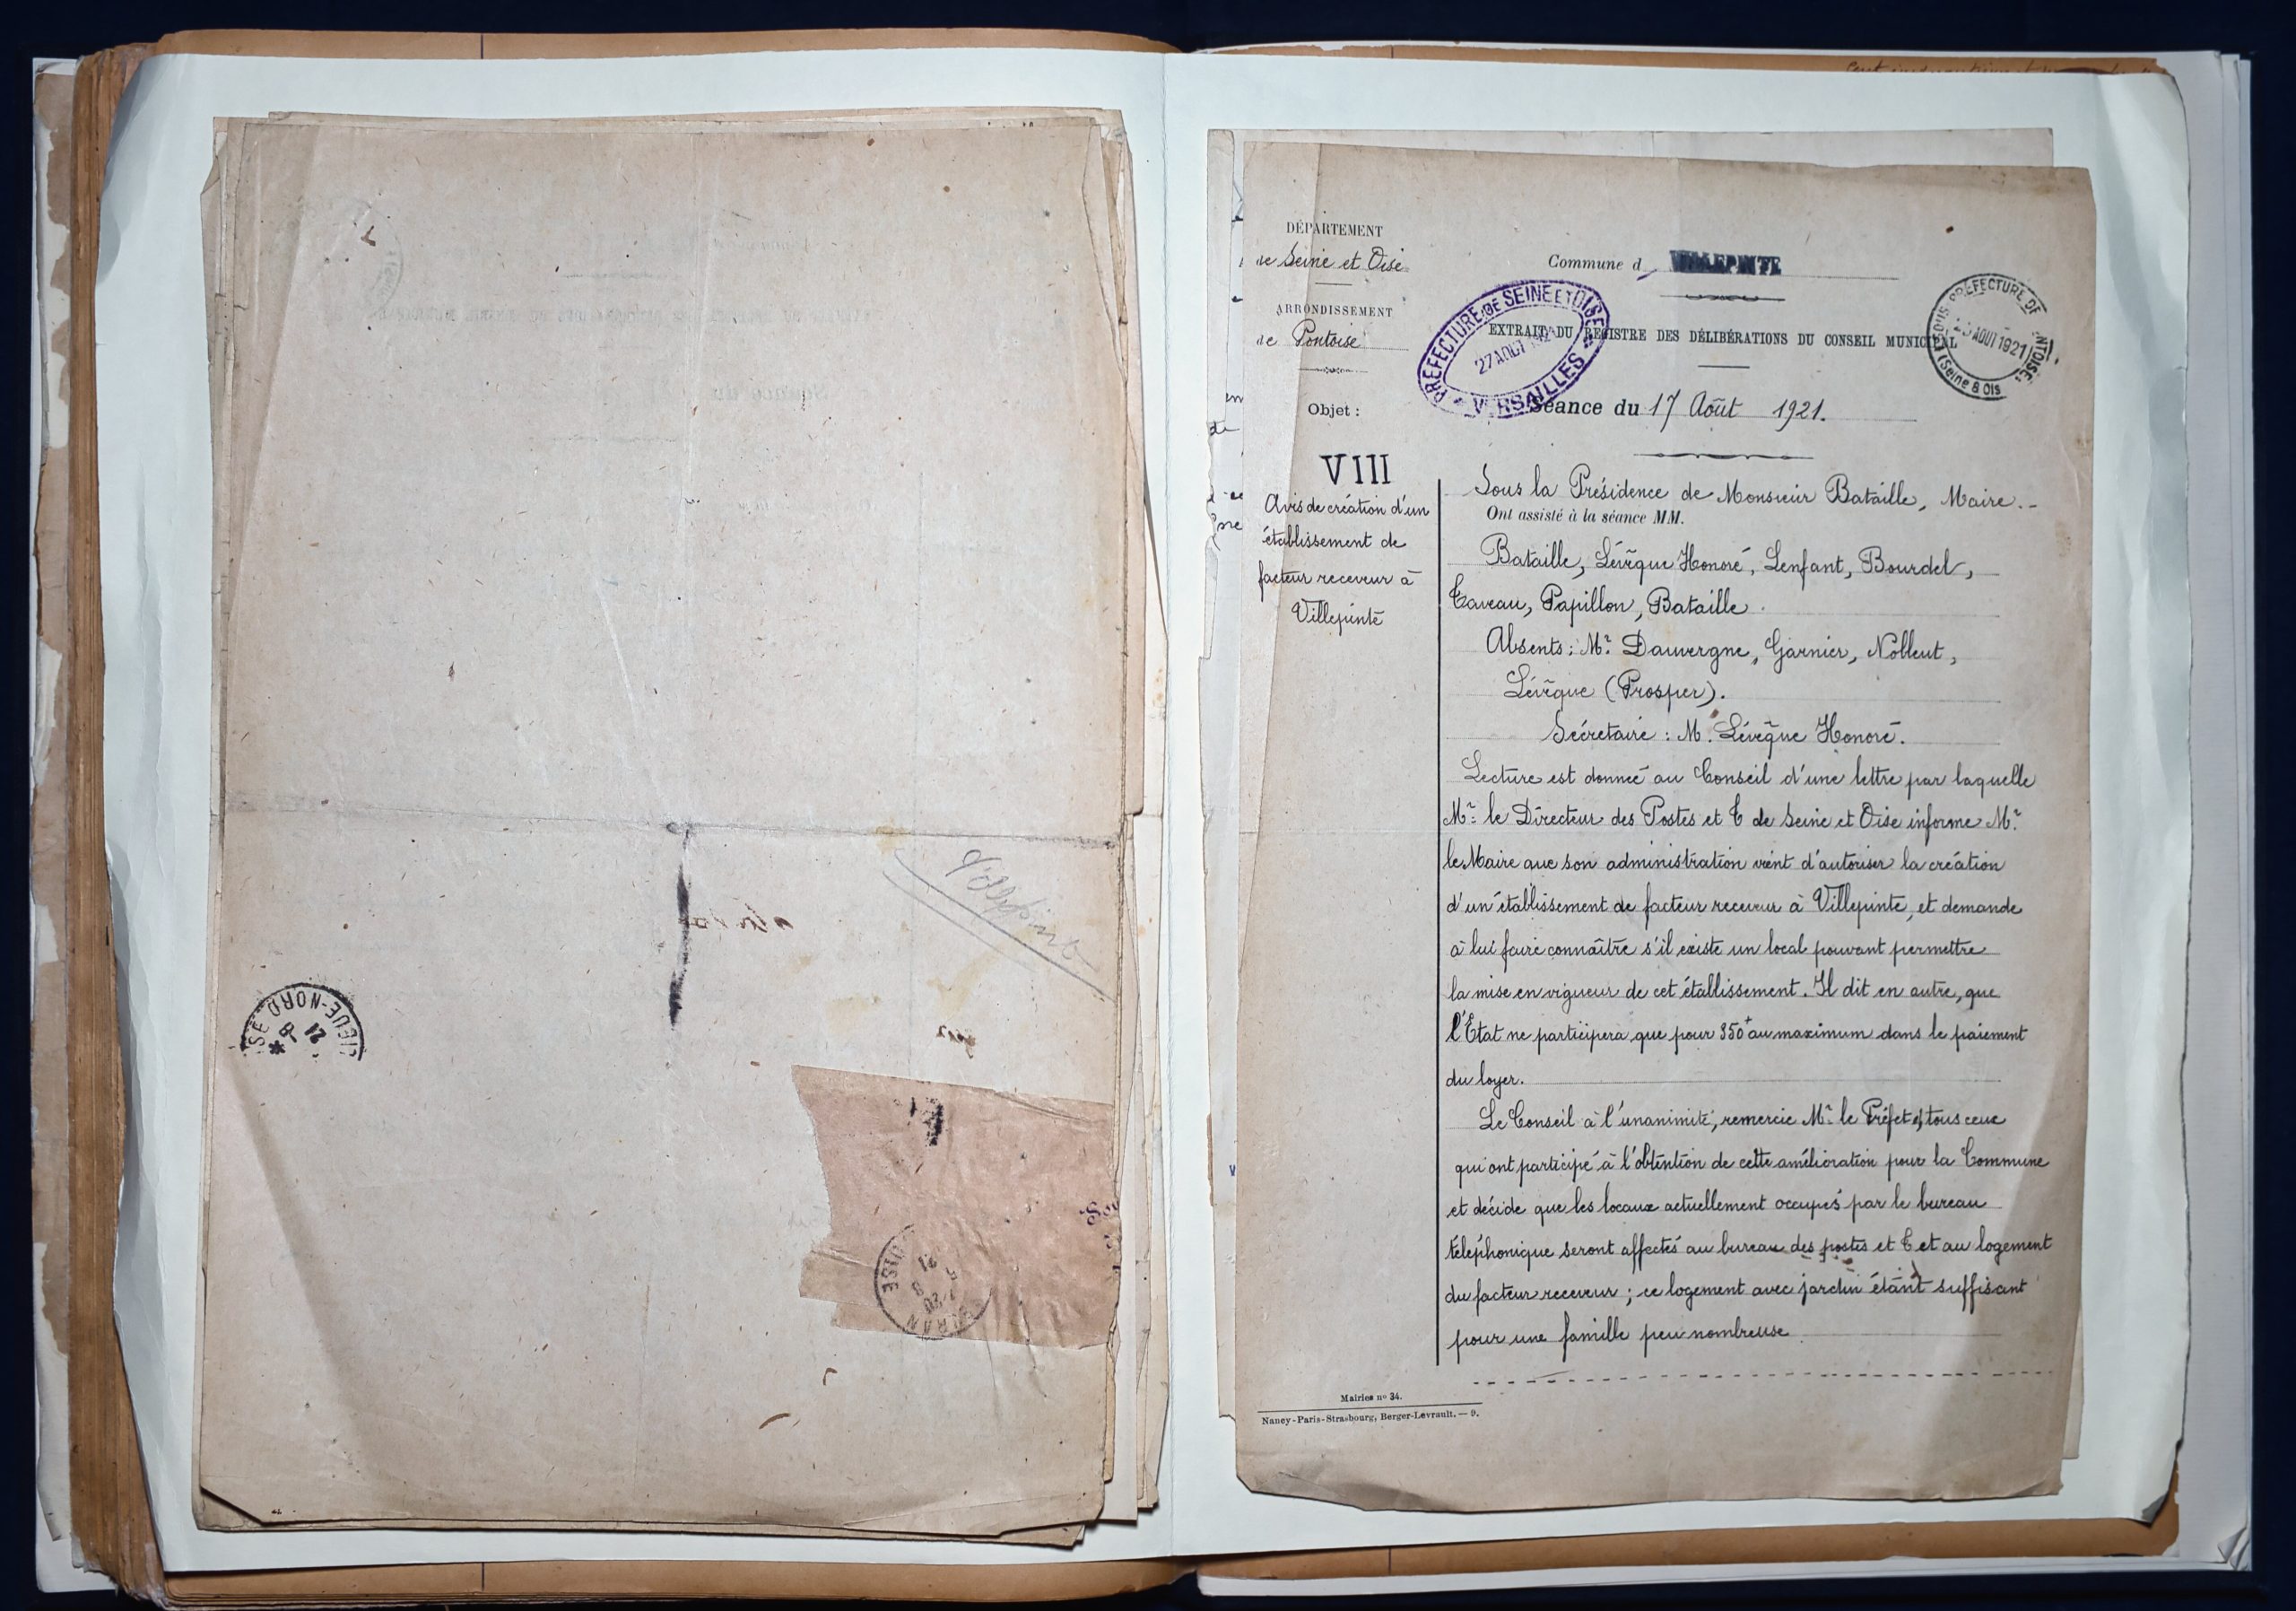 Villepinte
DÉPARTEMENT
de Seine et Oise
ARRONDISSEMENT
de Pontoise
Commune d VILLEPINTE
PRÉFECTURE DE SEINE ET OISE
27 AOUT 1921
VERSAILLES
SOUS-PRÉFECTURE DE
AOUT 1921
(Seine & Ois
EXTRAIT DU REGISTRE DES DÉLIBÉRATIONS DU CONSEIL MUNICIPAL
Séance du 17 Août 1921.
Objet :
VIII
Avis de création d'un
établissement de
facteur receveur à
Villepinte
Sous la Présidence de Monsieur Bataille, Maire.-
Ont assisté à la séance MM.
Bataille, Lévêque Honoré, Lenfant, Bourdel,
Taveau, Papillon, Bataille.
Absents : Mr. Dauvergne, Garnier, Nobleut,
Lévêque (Prosper).
Secrétaire : M. Lévêque Honoré.
Lecture est donnée au Conseil d'une lettre par laquelle
Mr. le Directeur des Postes et T de Seine et Oise informe Mr.
le Maire que son administration vient d'autoriser la création
d'un établissement de facteur receveur à Villepinte, et demande
à lui faire connaître s'il existe un local pouvant permettre
la mise en vigueur de cet établissement. Il dit en outre, que
l'Etat ne participera que pour 350f au maximum dans le paiement
du loyer.
Le Conseil à l'unanimité, remercie Mr. le Préfet et tous ceux
qui ont participé à l'obtention de cette amélioration pour la Commune
et décide que les locaux actuellement occupés par le bureau
téléphonique seront affectés au bureau des postes et T et au logement
du facteur receveur ; ce logement avec jardin étant suffisant
pour une famille peu nombreuse.
Mairies nº 34.
Nancy-Paris-Strasbourg, Berger-Levrault. — 9.